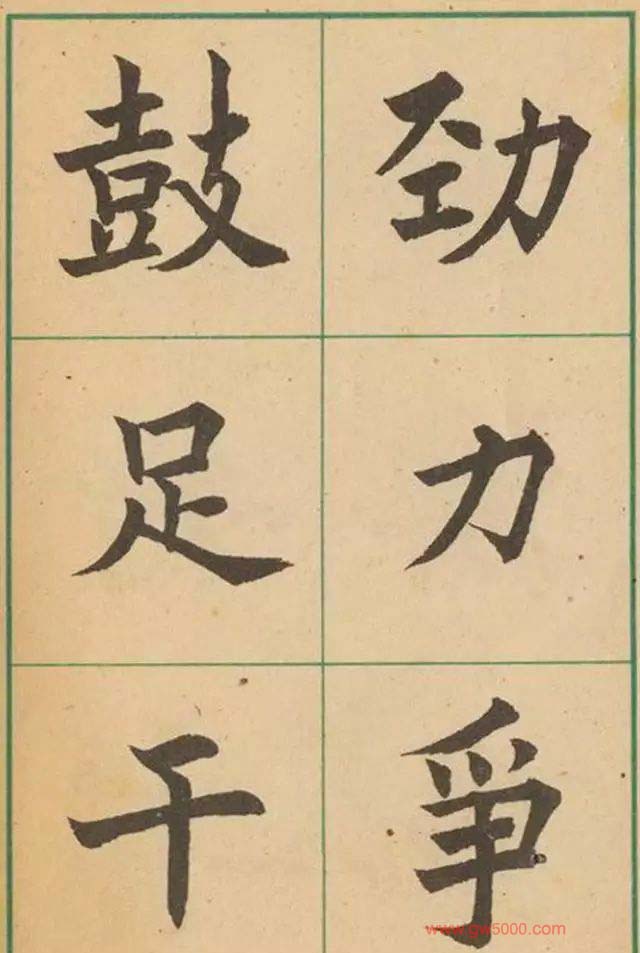 鼓足干
劲力爭
www.gw5000.com